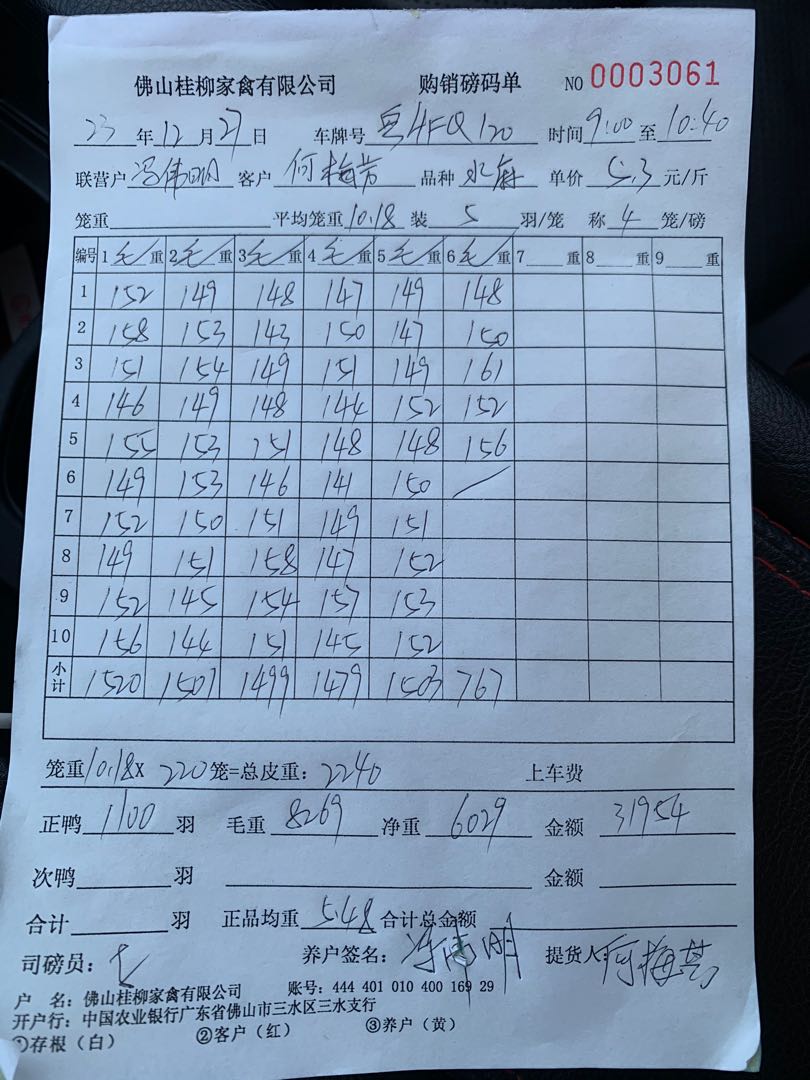 佛山桂柳家禽有限公司 购销磅码单 NO 0003061
23 年 12 月 27 日 车牌号 粤AFQ120 时间 9:00 至 10:40
联营户 冯伟明 客户 何梅芳 品种 水麻 单价 5.3 元/斤
笼重 平均笼重 10.18 装 5 羽/笼 称 4 笼/磅
编号 1 毛 重 2 毛 重 3 毛 重 4 毛 重 5 毛 重 6 毛 重 7 重 8 重 9 重
1 152 149 148 147 149 148
2 158 153 143 150 147 150
3 151 154 149 151 149 161
4 146 149 148 144 152 152
5 155 153 151 148 148 156
6 149 153 146 141 150
7 152 150 151 149 151
8 149 151 158 147 152
9 152 145 154 157 153
10 156 144 151 145 152
小计 1520 1501 1499 1479 1503 767
笼重 10.18 X 220 笼=总皮重: 2240 上车费
正鸭 1100 羽 毛重 8269 净重 6029 金额 31954
次鸭 羽 金额
合计 羽 正品均重 5.48 合计总金额
司磅员: 养户签名: 冯伟明 提货人: 何梅芳
户 名: 佛山桂柳家禽有限公司 账号: 444 401 010 400 169 29
开户行: 中国农业银行广东省佛山市三水区三水支行
①存根（白） ②客户（红） ③养户（黄）